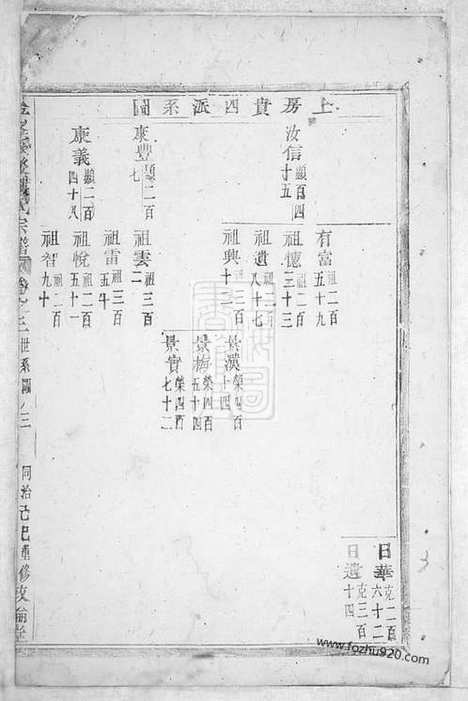 上房貴四派系圖
汝信 顯百四十五
有富 祖二百五十九
祖德 祖二百三十三
祖遺 祖二百八十七
祖興 祖三百十一
景漢 榮四百十四
景梅 榮四百五十四
景實 榮四百七十二
東豐 顯二百七
祖雲 祖三百二
祖雷 祖三百五十
康義 顯二百四十八
祖悅 祖二百五十一
祖智 祖二百九十
日華 克二百六十二
日遺 克三百十四
宗譜 卷之三 世系圖 三 同治己巳重修
www.fozhu920.com